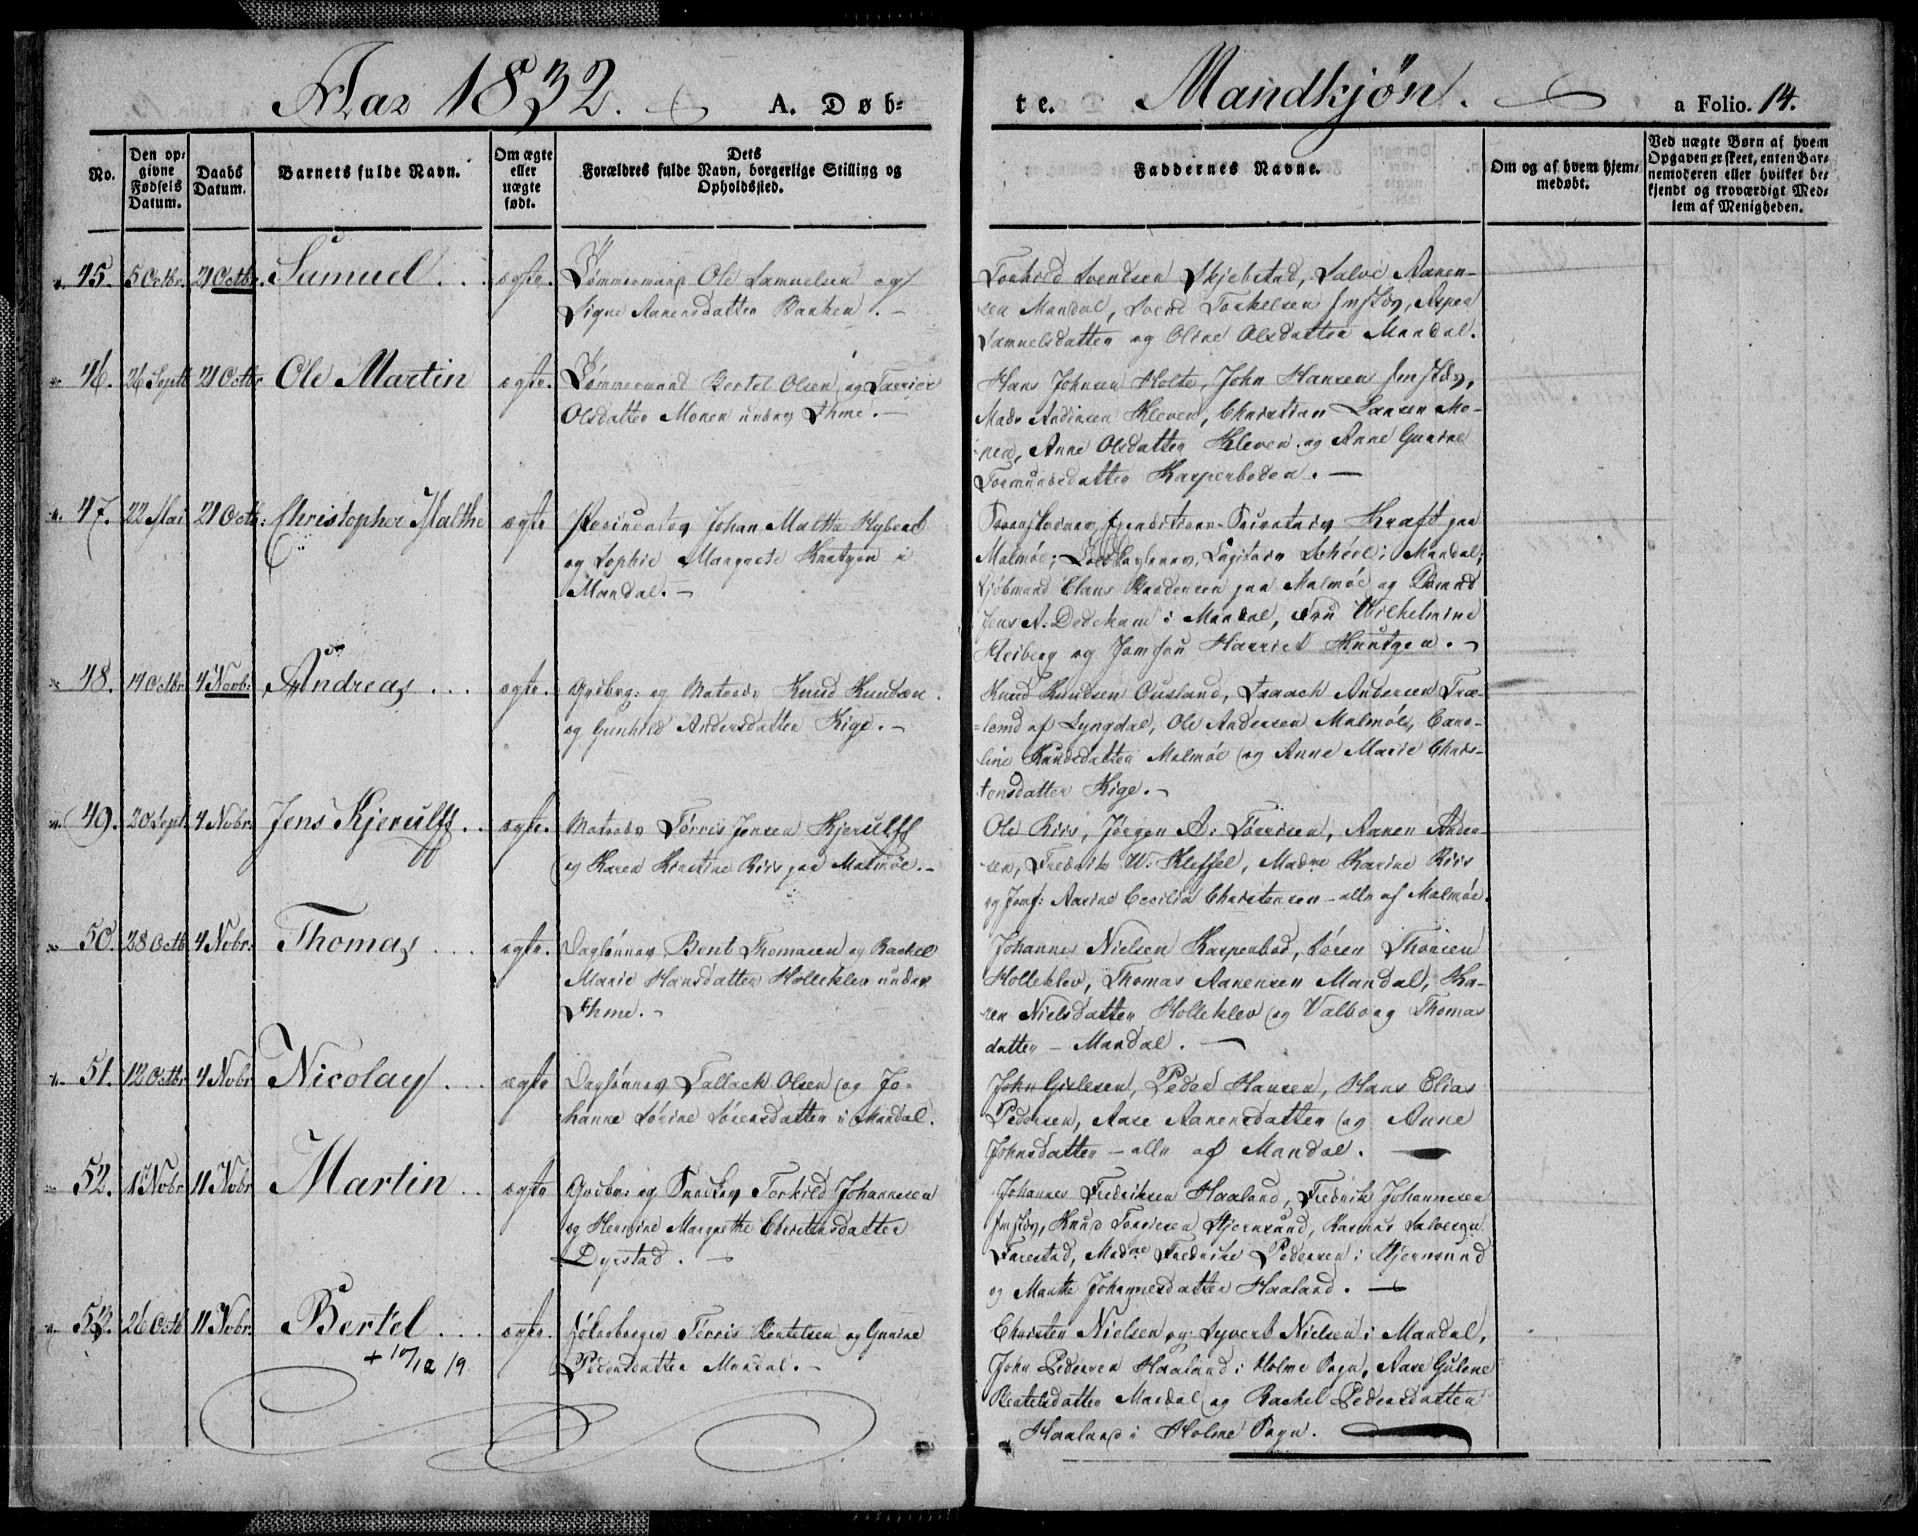 Aar 1832. A. Døb-
te. Mandkjøn. a Folio. 14.
No.
Den op-
givne
Fødsels
Datum.
Daabs
Datum.
Barnets fulde Navn.
Om ægte
eller
uægte
født.
Dets
Forældres fulde Navn, borgerlige Stilling og
Opholdssted.
Faddernes Navne.
Om og af hvem hjem-
medøbt.
Ved uægte Børn af hvem
Opgaven er skeet, enten Bar-
nemoderen eller hvilket be-
kjendt og troværdigt Med-
lem af Menigheden.
45. 5 Octbr. 21 Octbr. Samuel ægte. Tømmermand Ole Samuelsen og
Signe Aanensdatter Banken.
Torkild Svendsen Skjebstad, Salve Aanen-
sen Mandal, Svend Torkelsen, Aspen
Samuelsdatter og Oline Olsdatter Mandal.
46. 26 Septb 21 Octbr Ole Martin ægte. Tømmermand Bertel Olsen og
Olsdatter Monen under Ihme.
Hans Johnsen Holte, John Hansen
Mads Andersen Kleven, Christian Larsen Mo-
nen, Anne Olsdatter Kleven og Anne Gurine
Tormundsdatter Karpenboden.
47. 22 Mai 21 Octb: Christopher Malthe ægte Johan Malthe Nyberg
og Sophie Margrete Knutzen i
Mandal.
Kraft paa
Malmøe; i Mandal;
Claus paa Malmøe og
Jens A. i Mandal, Fru Wilhelmine
Heiberg og Jomfru Harriet Knutzen.
48. 14 Octbr 4 Novb: Andreas ægte. Grdbrg: og Matrods Knud Knudsen
og Gunhild Andersdatter Kige.
Knud Knudsen Ousland, Isaach Andersen Træ-
lemd af Lyngdal, Ole Andersen Malmøe, Caro-
line Knudsdatter Malmøe og Anne Marie Chris-
tensdatter Kige.
49. 20 Sept. 4 Nobr. Jens Kjerulff ægte. Matrods Tørris Jensen Kjerulff
og Karen Kirstine Riis paa Malmøe.
Ole Riis, Jørgen A. Tørrisen, Aanen Ander-
sen, Fredrik W. Kleffel, Madme Karine Riis
og Jomf: Aasine Cecilia Christensen - alle af Malmøe.
50. 28 Octb 4 Nobr. Thomas ægte. Daglønner Bent Thomasen og Rachel
Marie Hansdatter Holleklev under
Ihme.
Johannes Nielsen Karpenbod, Søren
Holleklev, Thomas Aanensen Mandal, Ka-
ren Nielsdatter Holleklev og Valborg Thomas
datter - Mandal.
51. 12 Octbr 4 Nobr Nicolay ægte Daglønner Tallack Olsen og Jo-
hanne Sørine Sørensdatter i Mandal.
John Gislesen, Peder Hansen, Hans Elias
Pedersen, Aase Aanensdatter og Anne
Johnsdatter - alle af Mandal.
52. 1 Nobr 11 Nobr Martin ægte Grdbr: og Snedker Torkild Johannesen
og Hermine Margrethe Christensdatter
Dyrstad.
Johannes Fredriksen Haaland, Fredrik Johannesen
Knud Torrisen Stjernsund, Rasmus Salvesen
Farestad, Madme Fredrike Pedersen i Stjernsund
og Marthe Johannesdatter Haaland.
53. 26 Octb 11 Nobr. Bertel ægte. Torris Bertelsen og Gunine
+ 17/12 19. Pedersdatter Mandal.
Christen Nielsen og Syvert Nielsen i Mandal,
John Pedersen Haaland i Holme Sogn, Aase Gulene
Bertelsdatter Mandal og Rachel Pedersdatter
Haaland i Holme Sogn.